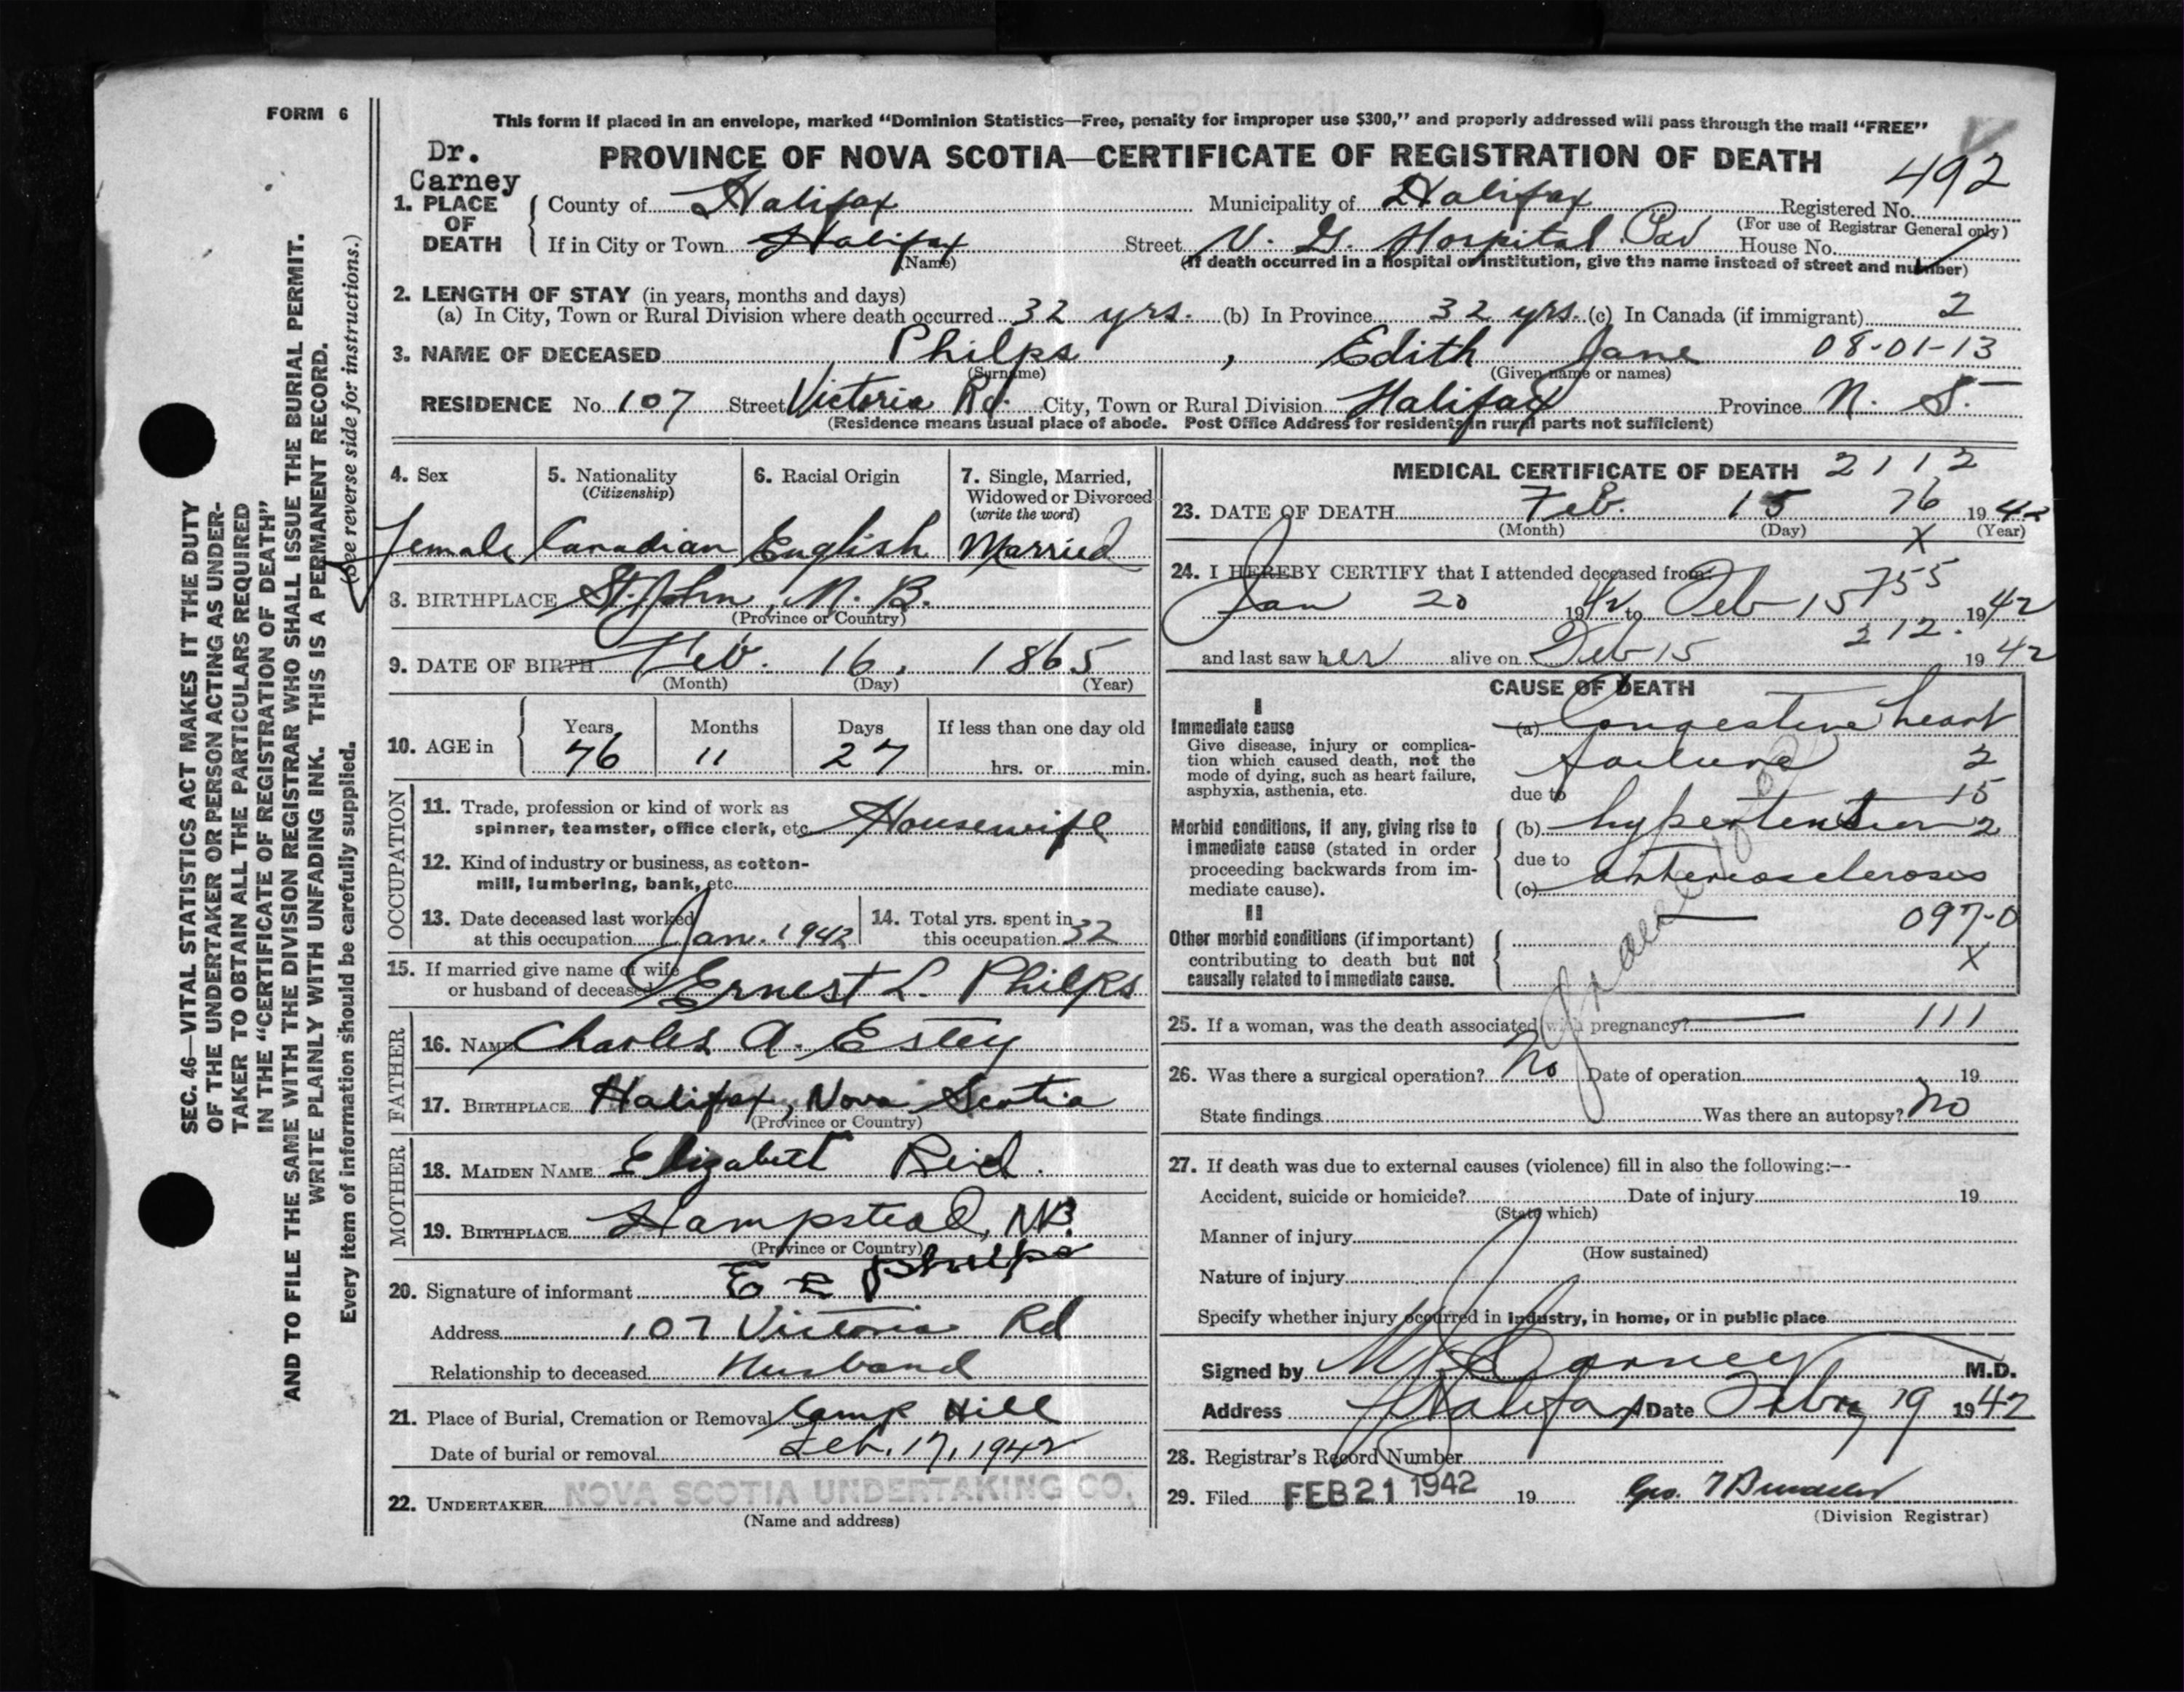 FORM 6
This form if placed in an envelope, marked "Dominion Statistics—Free, penalty for improper use $300," and properly addressed will pass through the mail "FREE"
Dr. Carney
PROVINCE OF NOVA SCOTIA—CERTIFICATE OF REGISTRATION OF DEATH
492
1. PLACE OF DEATH
County of Halifax Municipality of Halifax Registered No.
(For use of Registrar General only)
If in City or Town Halifax Street V. G. Hospital Pav House No.
(Name) (If death occurred in a hospital or institution, give the name instead of street and number)
2. LENGTH OF STAY (in years, months and days)
(a) In City, Town or Rural Division where death occurred 32 yrs. (b) In Province 32 yrs. (c) In Canada (if immigrant) 2
3. NAME OF DECEASED Philps, Edith Jane 08-01-13
(Surname) (Given name or names)
RESIDENCE No. 107 Street Victoria Rd. City, Town or Rural Division Halifax Province N. S.
(Residence means usual place of abode. Post Office Address for residents in rural parts not sufficient)
4. Sex
Female
5. Nationality
(Citizenship)
Canadian
6. Racial Origin
English
7. Single, Married,
Widowed or Divorced
(write the word)
Married
8. BIRTHPLACE St. John, N. B.
(Province or Country)
9. DATE OF BIRTH Feb. 16, 1865
(Month) (Day) (Year)
10. AGE in
Years Months Days If less than one day old
76 11 27 hrs. or min.
OCCUPATION
11. Trade, profession or kind of work as
spinner, teamster, office clerk, etc. Housewife
12. Kind of industry or business, as cotton-
mill, lumbering, bank, etc.
13. Date deceased last worked
at this occupation Jan. 1942
14. Total yrs. spent in
this occupation 32
15. If married give name of wife
or husband of deceased Ernest L. Philps
FATHER
16. NAME Charles A. Estey
17. BIRTHPLACE Halifax, Nova Scotia
(Province or Country)
MOTHER
18. MAIDEN NAME Elizabeth Reid.
19. BIRTHPLACE Hampstead, N.B.
(Province or Country)
20. Signature of informant E L Philps
Address 107 Victoria Rd
Relationship to deceased Husband
21. Place of Burial, Cremation or Removal Camp Hill
Date of burial or removal Feb. 17, 1942
22. UNDERTAKER NOVA SCOTIA UNDERTAKING CO.
(Name and address)
MEDICAL CERTIFICATE OF DEATH 2112
23. DATE OF DEATH Feb. 15 76 1942
(Month) (Day) (Year)
X
24. I HEREBY CERTIFY that I attended deceased from:
755
Jan 20 1942 to Feb 15 1942
212.
and last saw her alive on Feb 15 1942
CAUSE OF DEATH
I
Immediate cause
Give disease, injury or complica-
tion which caused death, not the
mode of dying, such as heart failure,
asphyxia, asthenia, etc.
(a) Congestive heart
failure 2
due to 15
Morbid conditions, if any, giving rise to
immediate cause (stated in order
proceeding backwards from im-
mediate cause).
(b) hypertension 2
due to
(c) arteriosclerosis
II
097-0
Other morbid conditions (if important)
contributing to death but not
causally related to immediate cause.
X
25. If a woman, was the death associated with pregnancy? 111
26. Was there a surgical operation? No Date of operation 19
State findings Was there an autopsy? No
27. If death was due to external causes (violence) fill in also the following:--
Accident, suicide or homicide? Date of injury 19
(State which)
Manner of injury
(How sustained)
Nature of injury
Specify whether injury occurred in industry, in home, or in public place
Signed by M J Carney M.D.
Address Halifax Date Febry 19 1942
28. Registrar's Record Number
29. Filed FEB 21 1942 19 Geo.
(Division Registrar)
SEC. 46—VITAL STATISTICS ACT MAKES IT THE DUTY
OF THE UNDERTAKER OR PERSON ACTING AS UNDER-
TAKER TO OBTAIN ALL THE PARTICULARS REQUIRED
IN THE "CERTIFICATE OF REGISTRATION OF DEATH"
AND TO FILE THE SAME WITH THE DIVISION REGISTRAR WHO SHALL ISSUE THE BURIAL PERMIT.
WRITE PLAINLY WITH UNFADING INK. THIS IS A PERMANENT RECORD.
Every item of information should be carefully supplied. (See reverse side for instructions.)